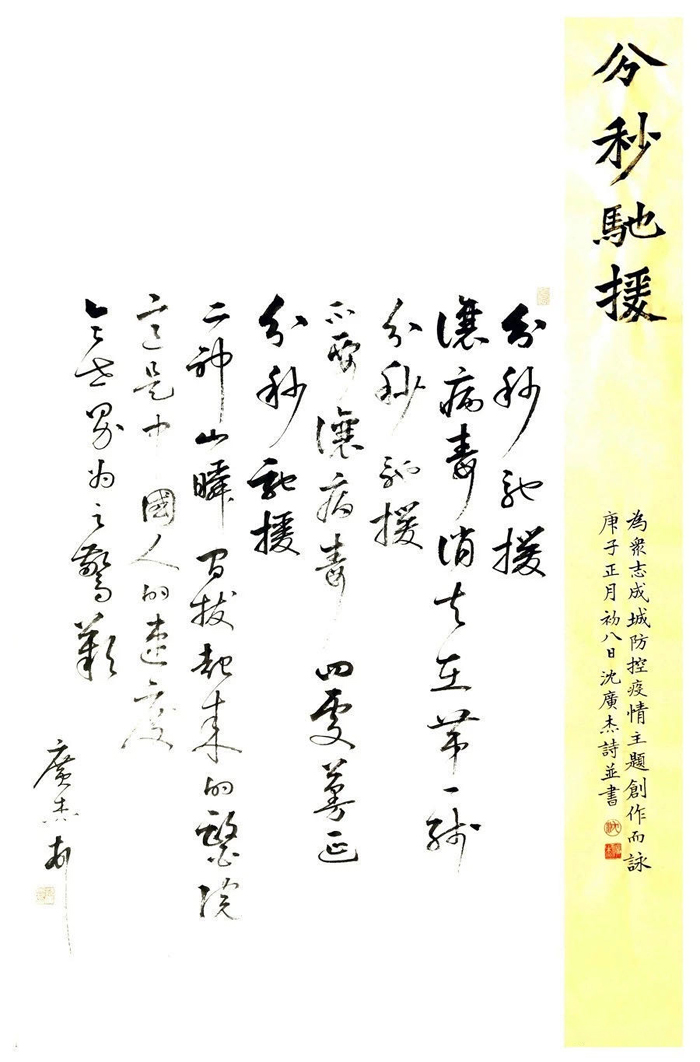 分秒馳援
為衆志成城防控疫情主題創作而詠
庚子正月初八日沈廣杰詩並書
分秒馳援
讓病毒消失在第一线
分秒馳援
不要讓病毒四处蔓延
分秒馳援
二神山瞬间拔起来的醫院
这是中國人的速度
令世界为之驚歎
廣杰